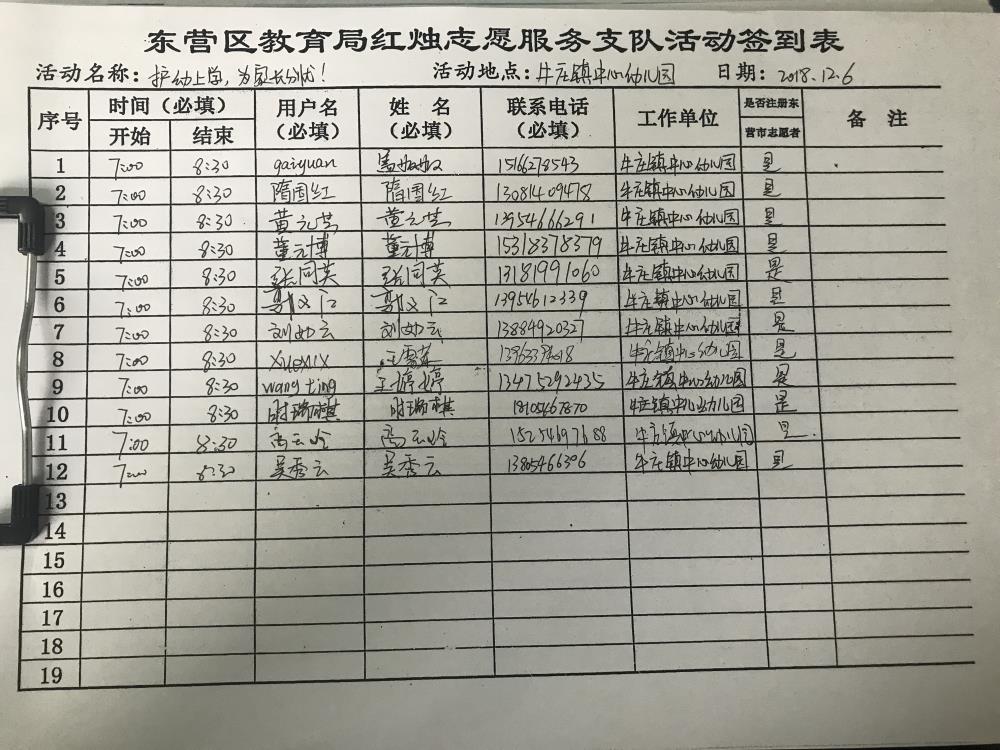 东营区教育局红烛志愿服务支队活动签到表
活动名称: 护幼上学,为家长分忧! 活动地点: 牛庄镇中心幼儿园 日期: 2018.12.6
序号 时间(必填) 用户名(必填) 姓名(必填) 联系电话(必填) 工作单位 是否注册东营市志愿者 备注
开始 结束
1 7:00 8:30 gaiyuan 15166278543 牛庄镇中心幼儿园 是
2 7:00 8:30 隋国红 隋国红 13081409478 牛庄镇中心幼儿园 是
3 7:00 8:30 黄元芸 董元芸 13954666291 牛庄镇中心幼儿园 是
4 7:00 8:30 董元博 董元博 15318378379 牛庄镇中心幼儿园 是
5 7:00 8:30 张同英 张同英 13181991060 牛庄镇中心幼儿园 是
6 7:00 8:30 13954612339 牛庄镇中心幼儿园 是
7 7:00 8:30 刘如云 刘如云 13884920327 牛庄镇中心幼儿园 是
8 7:00 8:30 牛庄镇中心幼儿园 是
9 7:00 8:30 wang ting 王婷婷 13475292435 牛庄镇中心幼儿园 是
10 7:00 8:30 时瑞祺 时瑞祺 18105467870 牛庄镇中心幼儿园 是
11 7:00 8:30 15254697688 牛庄镇中心幼儿园 是
12 7:00 8:30 吴秀云 吴秀云 13805466306 牛庄镇中心幼儿园 是
13
14
15
16
17
18
19